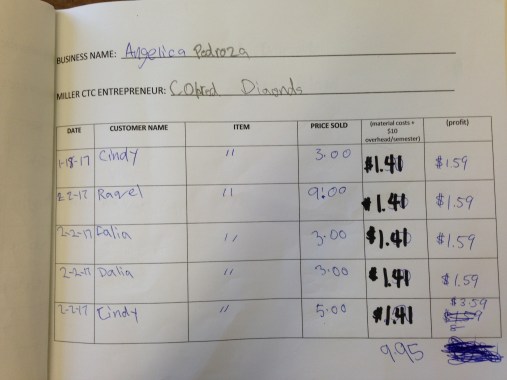 BUSINESS NAME: Angelica Pedroza
MILLER CTC ENTREPRENEUR: Diaonds
DATE CUSTOMER NAME ITEM PRICE SOLD (material costs + $10 overhead/semester) (profit)
1-18-17 Cindy " 3.00 $1.41 $1.59
2-2-17 Raqvel " 9.00 $1.41 $1.59
2-2-17 Dalia " 3.00 $1.41 $1.59
2-2-17 Dalia " 3.00 $1.41 $1.59
2-2-17 Cindy " 5.00 $1.41 $3.59
9.95